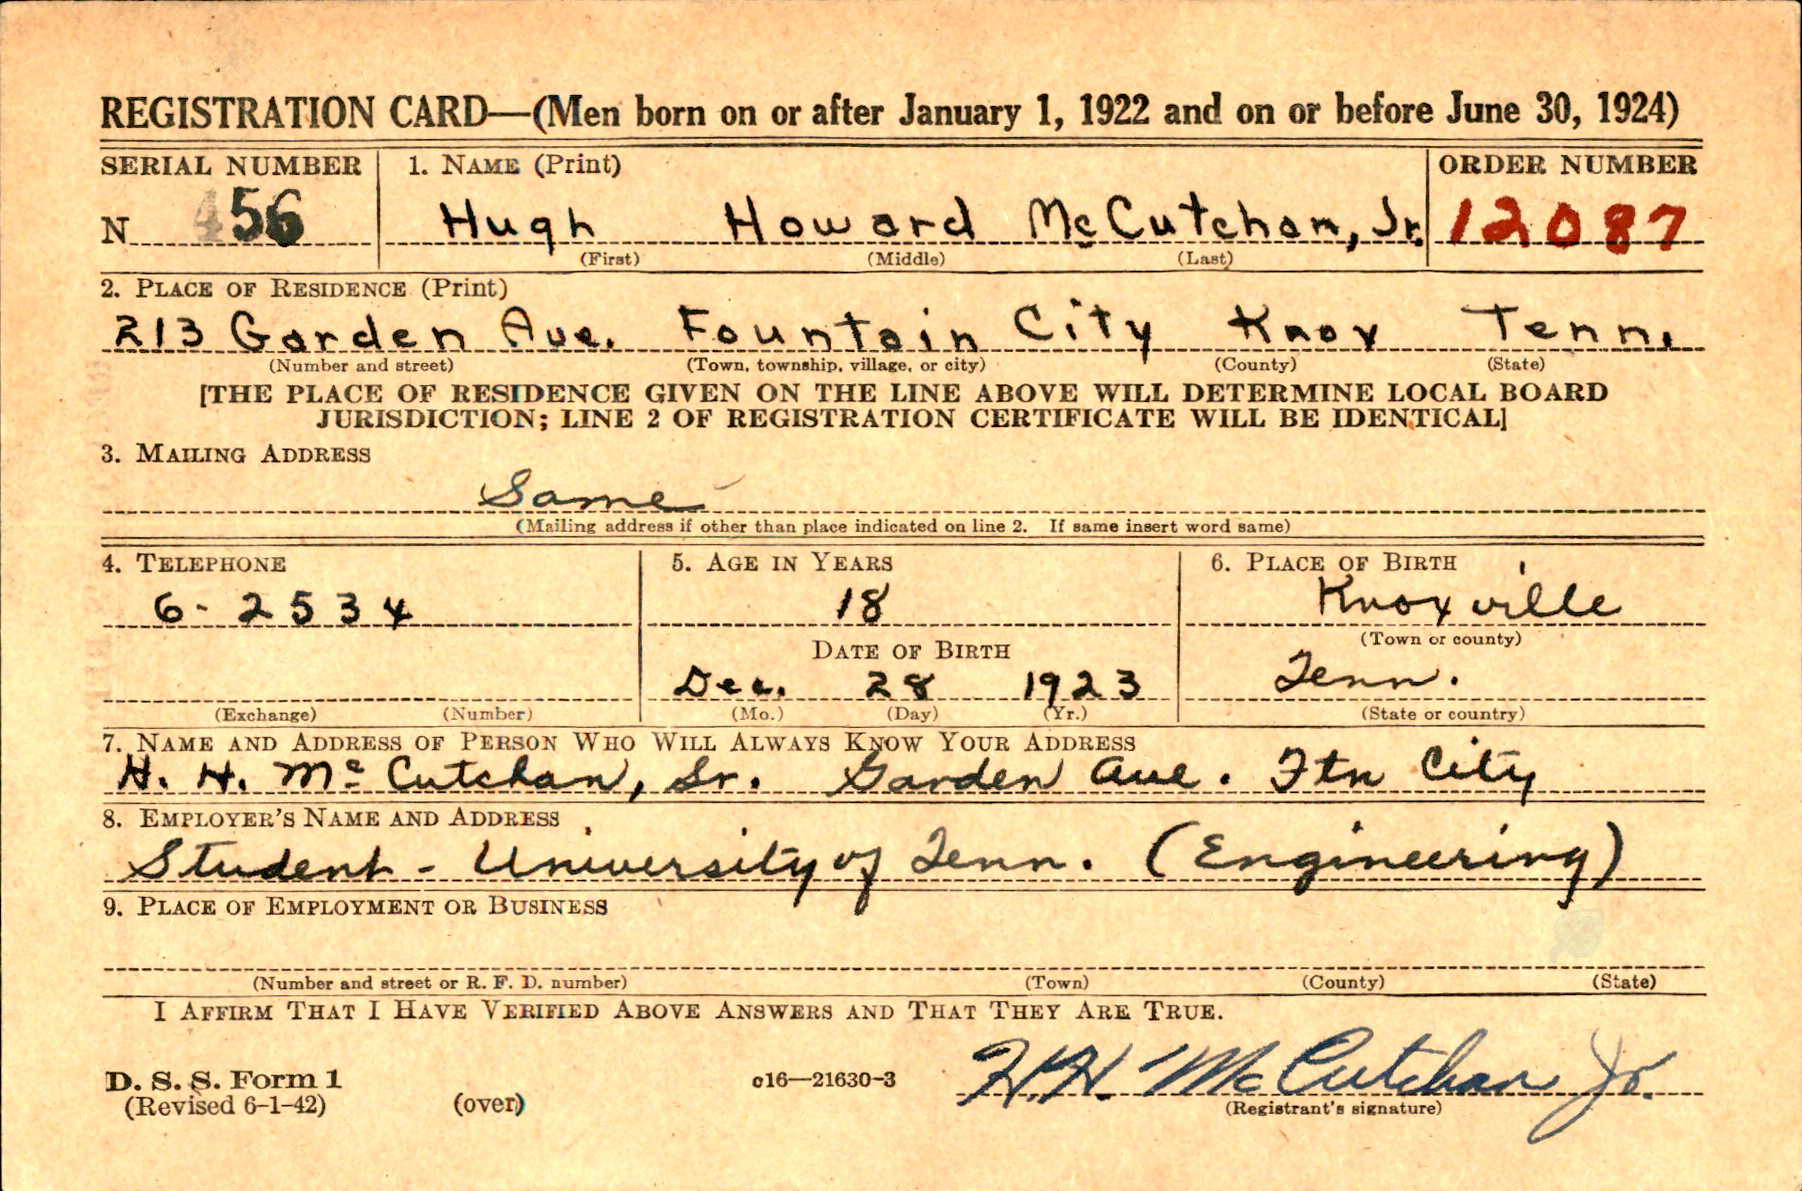 REGISTRATION CARD—(Men born on or after January 1, 1922 and on or before June 30, 1924)
SERIAL NUMBER 1. NAME (Print) ORDER NUMBER
N 456 Hugh Howard McCutchan, Jr. 12087
(First) (Middle) (Last)
2. PLACE OF RESIDENCE (Print)
213 Garden Ave. Fountain City Knox Tenn.
(Number and street) (Town, township, village, or city) (County) (State)
[THE PLACE OF RESIDENCE GIVEN ON THE LINE ABOVE WILL DETERMINE LOCAL BOARD
JURISDICTION; LINE 2 OF REGISTRATION CERTIFICATE WILL BE IDENTICAL]
3. MAILING ADDRESS
Same
(Mailing address if other than place indicated on line 2. If same insert word same)
4. TELEPHONE 5. AGE IN YEARS 6. PLACE OF BIRTH
6-2534 18 Knoxville
(Town or county)
DATE OF BIRTH
Dec. 28 1923 Tenn.
(Exchange) (Number) (Mo.) (Day) (Yr.) (State or country)
7. NAME AND ADDRESS OF PERSON WHO WILL ALWAYS KNOW YOUR ADDRESS
H. H. McCutchan, Sr. Garden Ave. Ftn City
8. EMPLOYER'S NAME AND ADDRESS
Student - University of Tenn. (Engineering)
9. PLACE OF EMPLOYMENT OR BUSINESS
(Number and street or R. F. D. number) (Town) (County) (State)
I AFFIRM THAT I HAVE VERIFIED ABOVE ANSWERS AND THAT THEY ARE TRUE.
D. S. S. Form 1 c16—21630-3 H.H. McCutchan Jr.
(Revised 6-1-42) (over) (Registrant's signature)